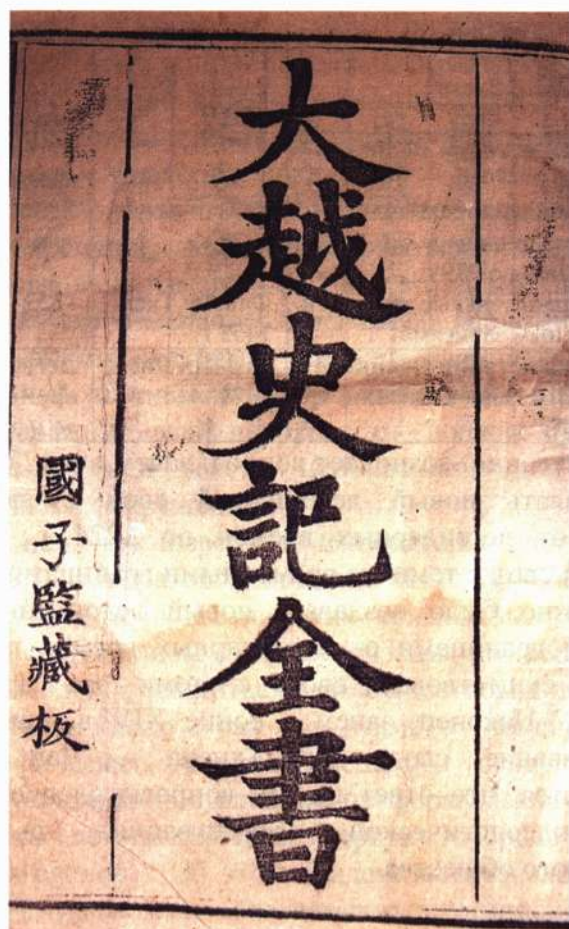 大越史記全書
國子監藏板